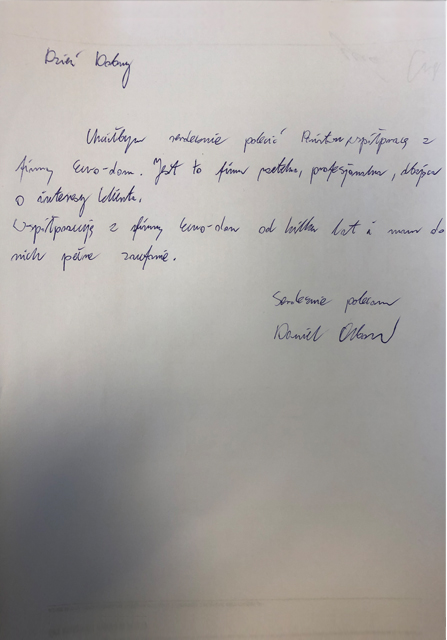 Dzień Dobry
Chciałbym serdecznie polecić Państwu współpracę z
firmą Euro-dom. Jest to firma rzetelna, profesjonalna, dbająca
o interesy klienta.
Współpracuję z firmą Euro-dom od kilku lat i mam do
nich pełne zaufanie.
Serdecznie polecam
Daniel